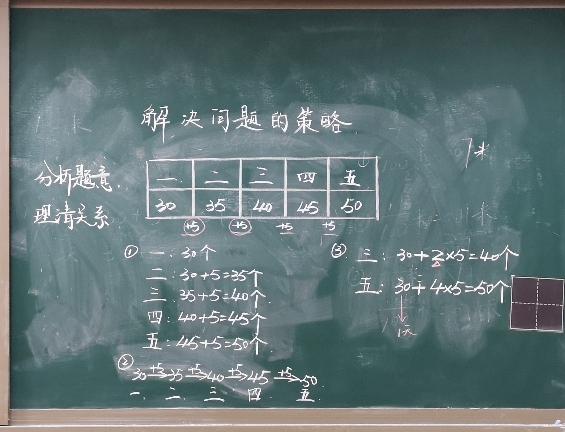 解决问题的策略
分析题意
理清关系
一 二 三 四 五
30 35 40 45 50
+5 +5 +5 +5
① 一: 30个
二: 30+5=35个
三: 35+5=40个
四: 40+5=45个
五: 45+5=50个
② 30 +5→ 35 +5→ 40 +5→ 45 +5→ 50
一 二 三 四 五
③ 三: 30+2×5=40个
五: 30+4×5=50个
1天